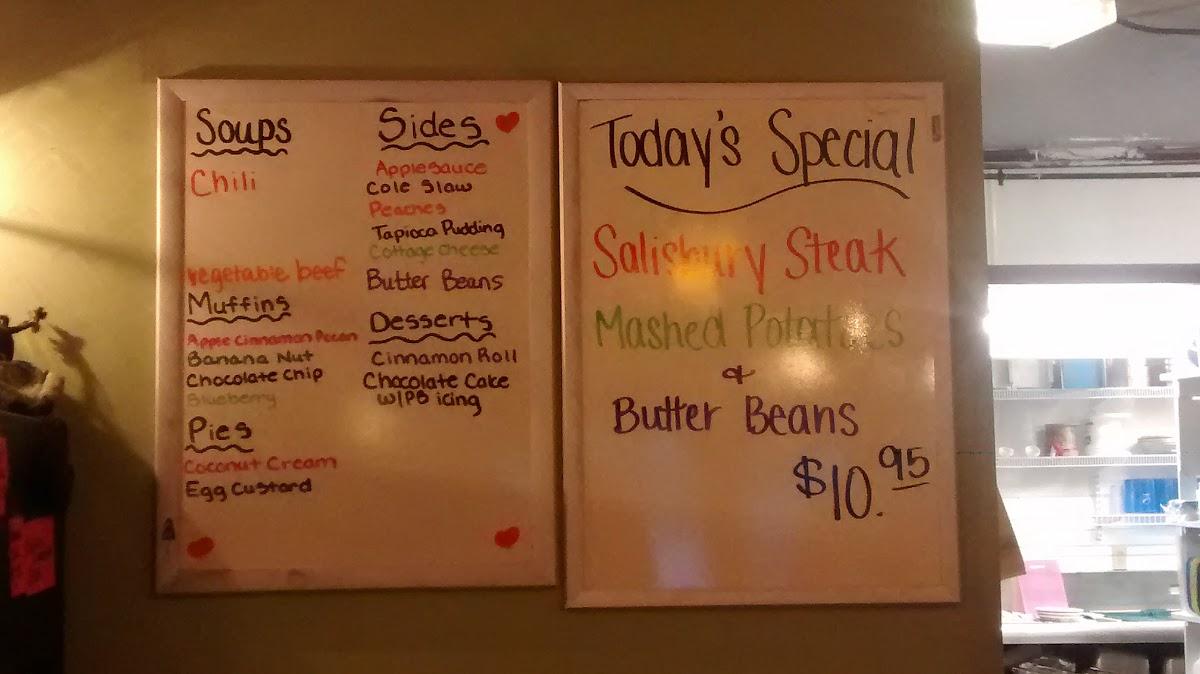 Soups
Chili
vegetable beef
Muffins
Apple Cinnamon Pecan
Banana Nut
Chocolate Chip
Blueberry
Pies
Coconut Cream
Egg Custard
Sides
Applesauce
Cole Slaw
Peaches
Tapioca Pudding
Cottage Cheese
Butter Beans
Desserts
Cinnamon Roll
Chocolate Cake
w/PB icing
Today's Special
Salisbury Steak
Mashed Potatoes
&
Butter Beans
$10.95